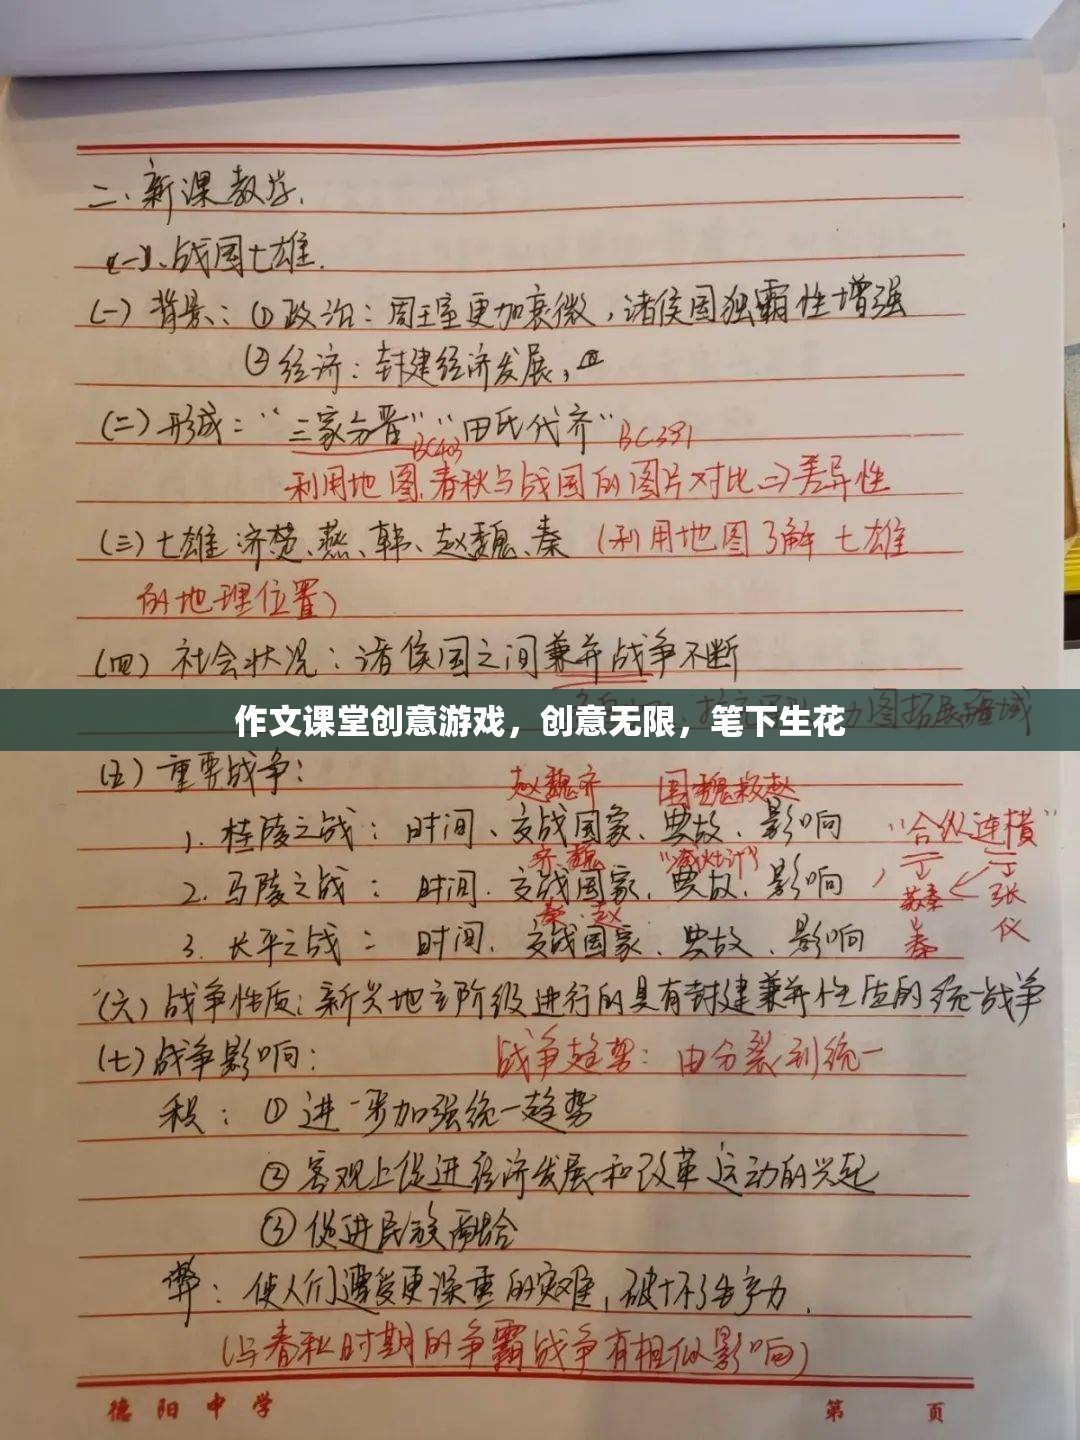 二、新课教学.
(一)、战国七雄.
(一) 背景：①政治：周王室更加衰微，诸侯国独霸性增强
②经济：封建经济发展，
(二) 形成：“三家分晋”“田氏代齐”
BC403
BC391
利用地图.春秋与战国的图片对比⇒差异性
(三) 七雄 济楚、燕、韩、赵魏、秦（利用地图了解七雄
的地理位置）
(四) 社会状况：诸侯国之间兼并战争不断
图拓展疆域
作文课堂创意游戏，创意无限，笔下生花
(五) 重要战争：
赵魏齐 围魏救赵
1. 桂陵之战：时间、交战国家、典故、影响 “合纵连横”
齐 魏 “减灶计”
2. 马陵之战：时间.交战国家、典故、影响
苏秦 张仪
秦 赵
3. 长平之战：时间.交战国家、典故、影响
秦
(六) 战争性质：新兴地主阶级进行的具有封建兼并性质的统一战争
(七) 战争影响： 战争趋势：由分裂到统一
积：①进一步加强统一趋势
②客观上促进经济发展和改革运动的兴起
③促进民族融合
弊：使人们遭受更深重的灾难，破坏了生产力.
（与春秋时期的争霸战争有相似影响）
德阳中学 第 页